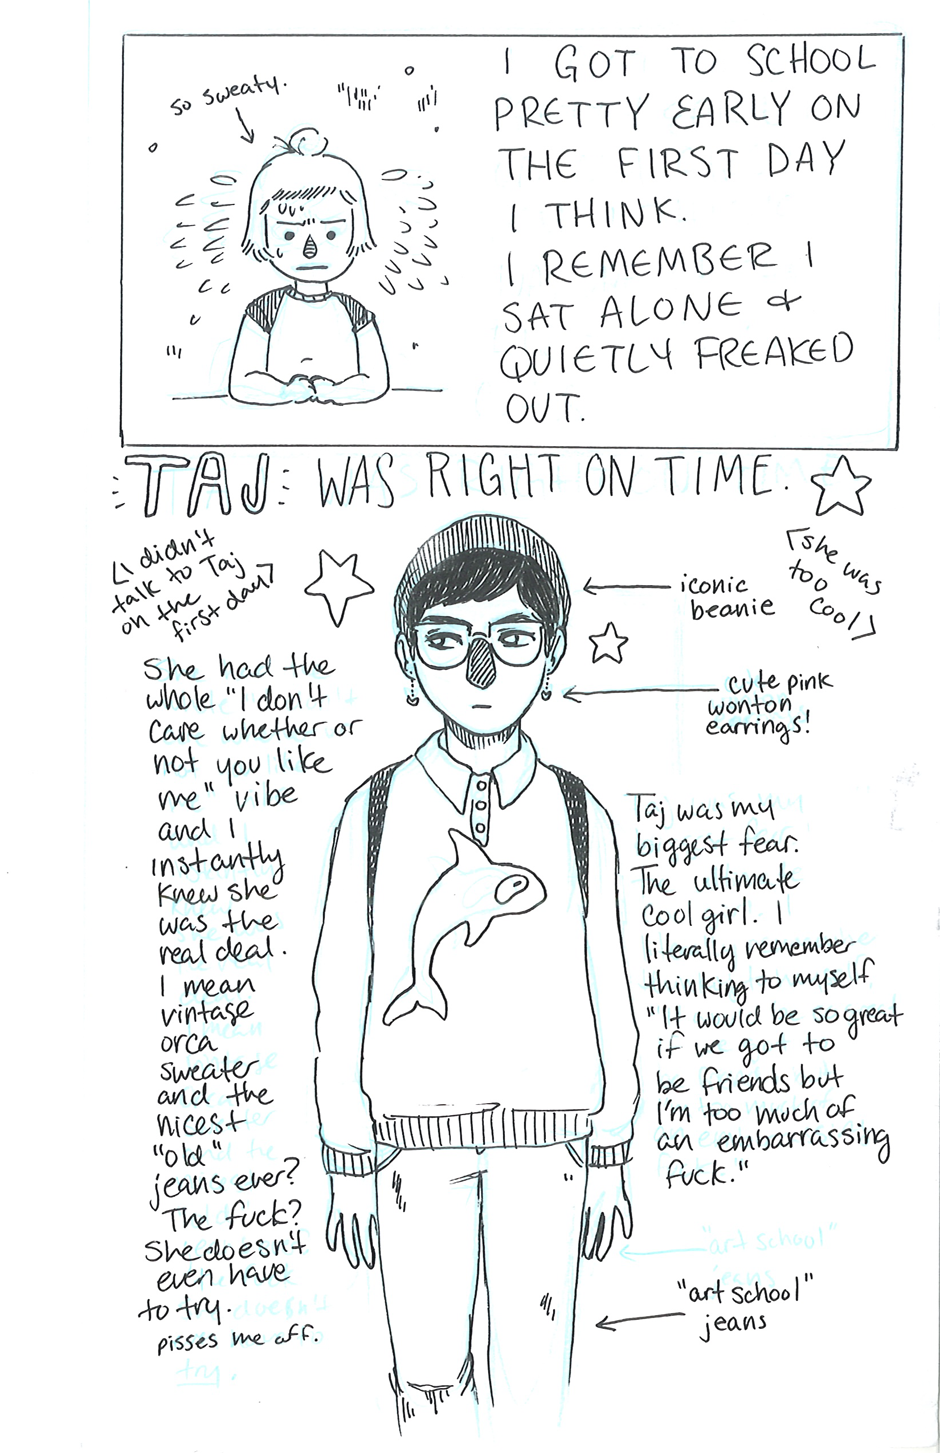 so sweaty.
I GOT TO SCHOOL
PRETTY EARLY ON
THE FIRST DAY
I THINK.
I REMEMBER I
SAT ALONE &
QUIETLY FREAKED
OUT.
TAJ WAS RIGHT ON TIME.
I didn't
talk to Taj
on the
first day
she was
too
cool
iconic
beanie
cute pink
wonton
earrings!
She had the
whole "I don't
care whether or
not you like
me" vibe
and I
instantly
knew she
was the
real deal.
I mean
vintage
orca
sweater
and the
nicest
"old"
jeans ever?
The fuck?
She doesn't
even have
to try.
pisses me off.
Taj was my
biggest fear.
The ultimate
cool girl. I
literally remember
thinking to myself
"It would be so great
if we got to
be friends but
I'm too much of
an embarrassing
fuck."
"art school"
jeans
"art school"
jeans
try.